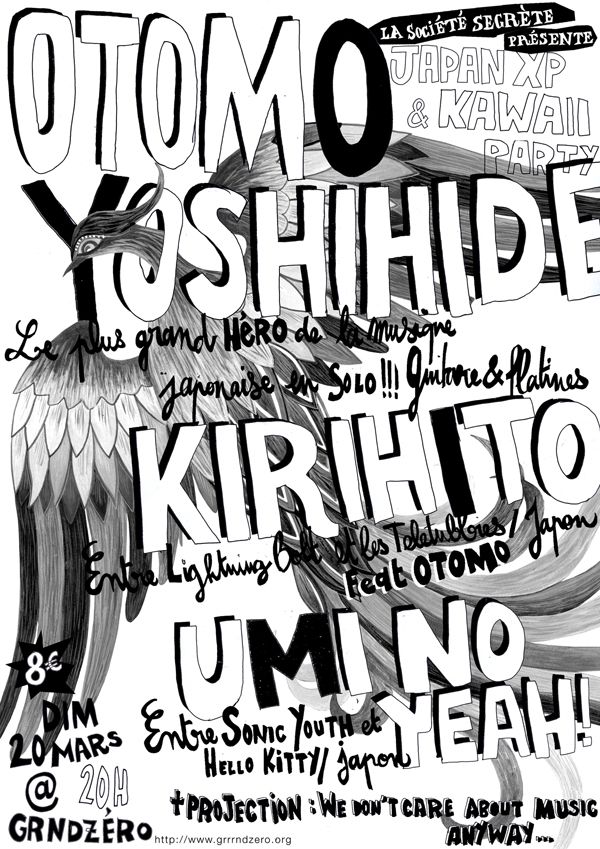 LA SOCIÉTÉ SECRÈTE
PRÉSENTE
JAPAN XP
& KAWAII
PARTY
OTOMO
YOSHIHIDE
Le plus grand HÉRO de la musique
japonaise en SOLO!!! Guitare & Platines
KIRIHITO
Entre Lightning Bolt et les Teletubbies / Japon
Feat OTOMO
UMI NO
YEAH!
Entre SONIC YOUTH et
HELLO KITTY / japon
8€
DIM
20 MARS
@ 20H
GRNDZÉRO
http://www.grrrndzero.org
+PROJECTION : WE DON'T CARE ABOUT MUSIC
ANYWAY...